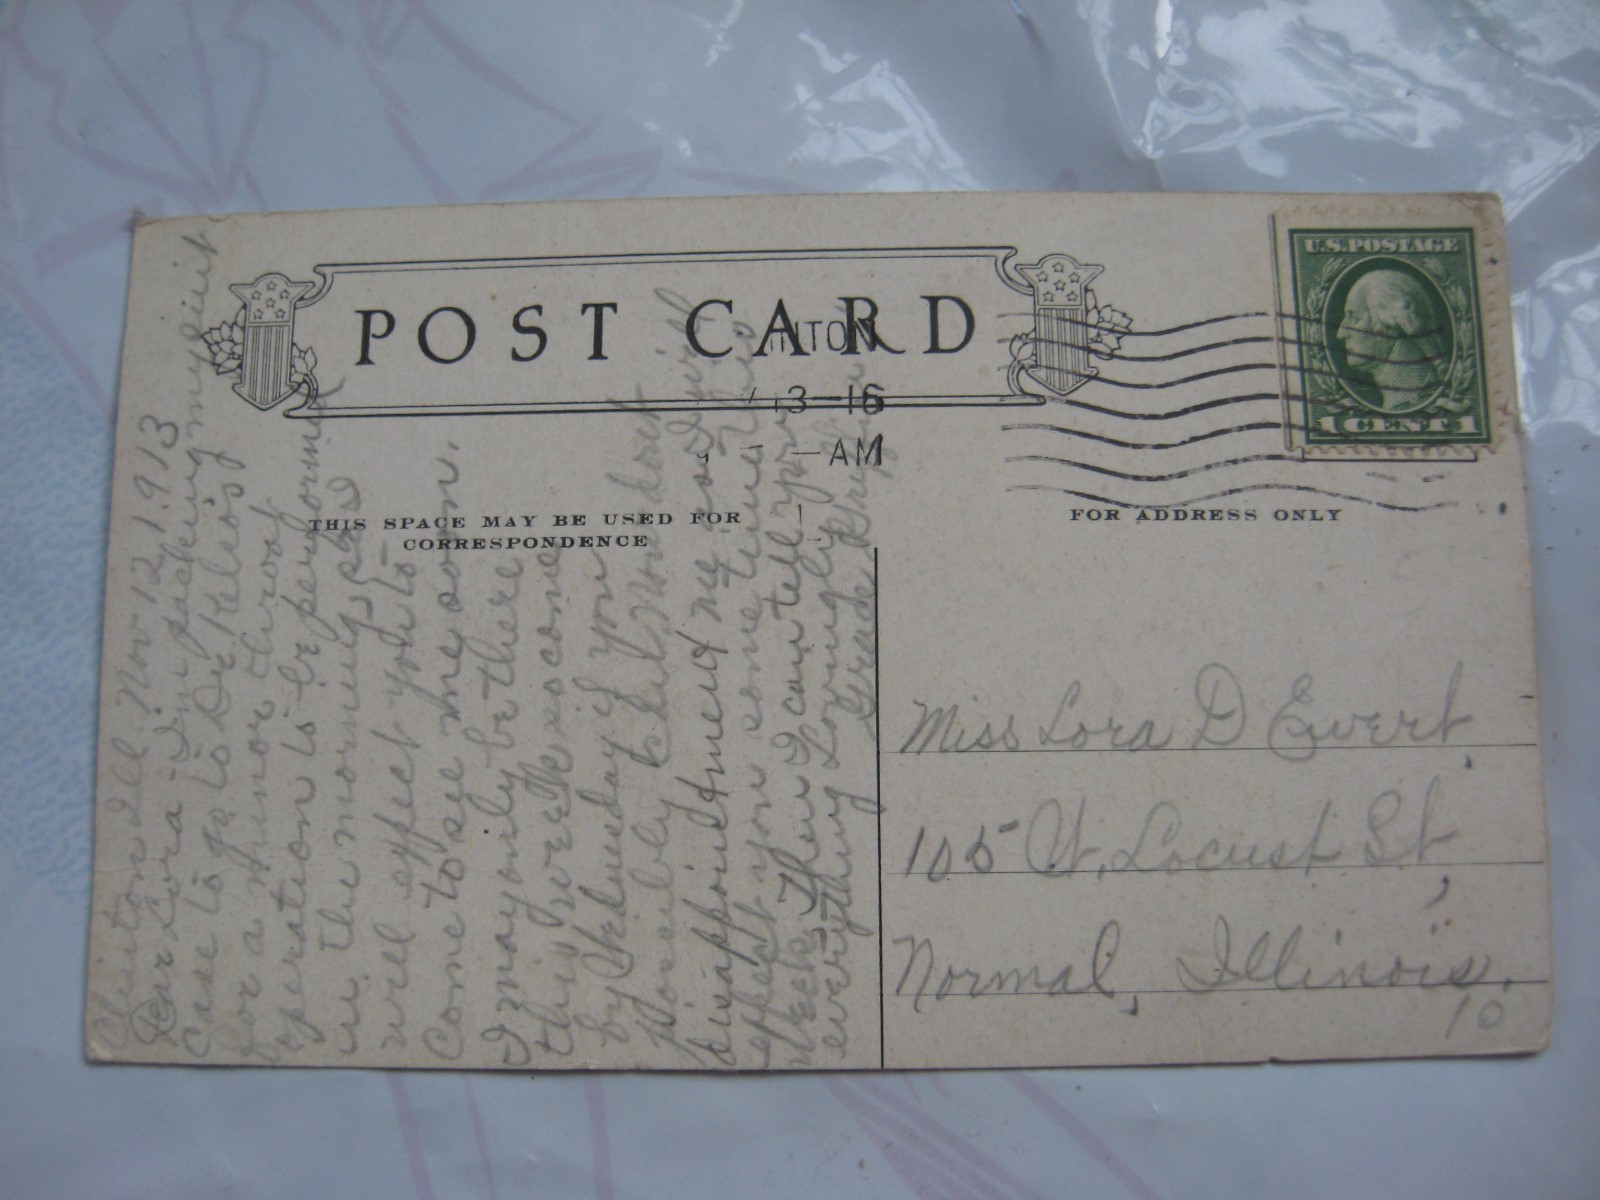 POST CARD
INTON
13-16
AM
THIS SPACE MAY BE USED FOR
CORRESPONDENCE
FOR ADDRESS ONLY
U.S.POSTAGE
1 CENT 1
Clinton Ill Nov 12 1913
Dear Lora I'm packing my suit
case to go to Dr.
for a minor throat
operation is to be performed
in the morning
will expect you to
come to see me soon.
I may only be there
this week so come
by Wednesday if you
possibly
disappoint me
expect you some time this
week Then I can tell you
everything Lovingly
Grace
Miss Lora D Ewert
105 W. Locust St
Normal, Illinois.
10